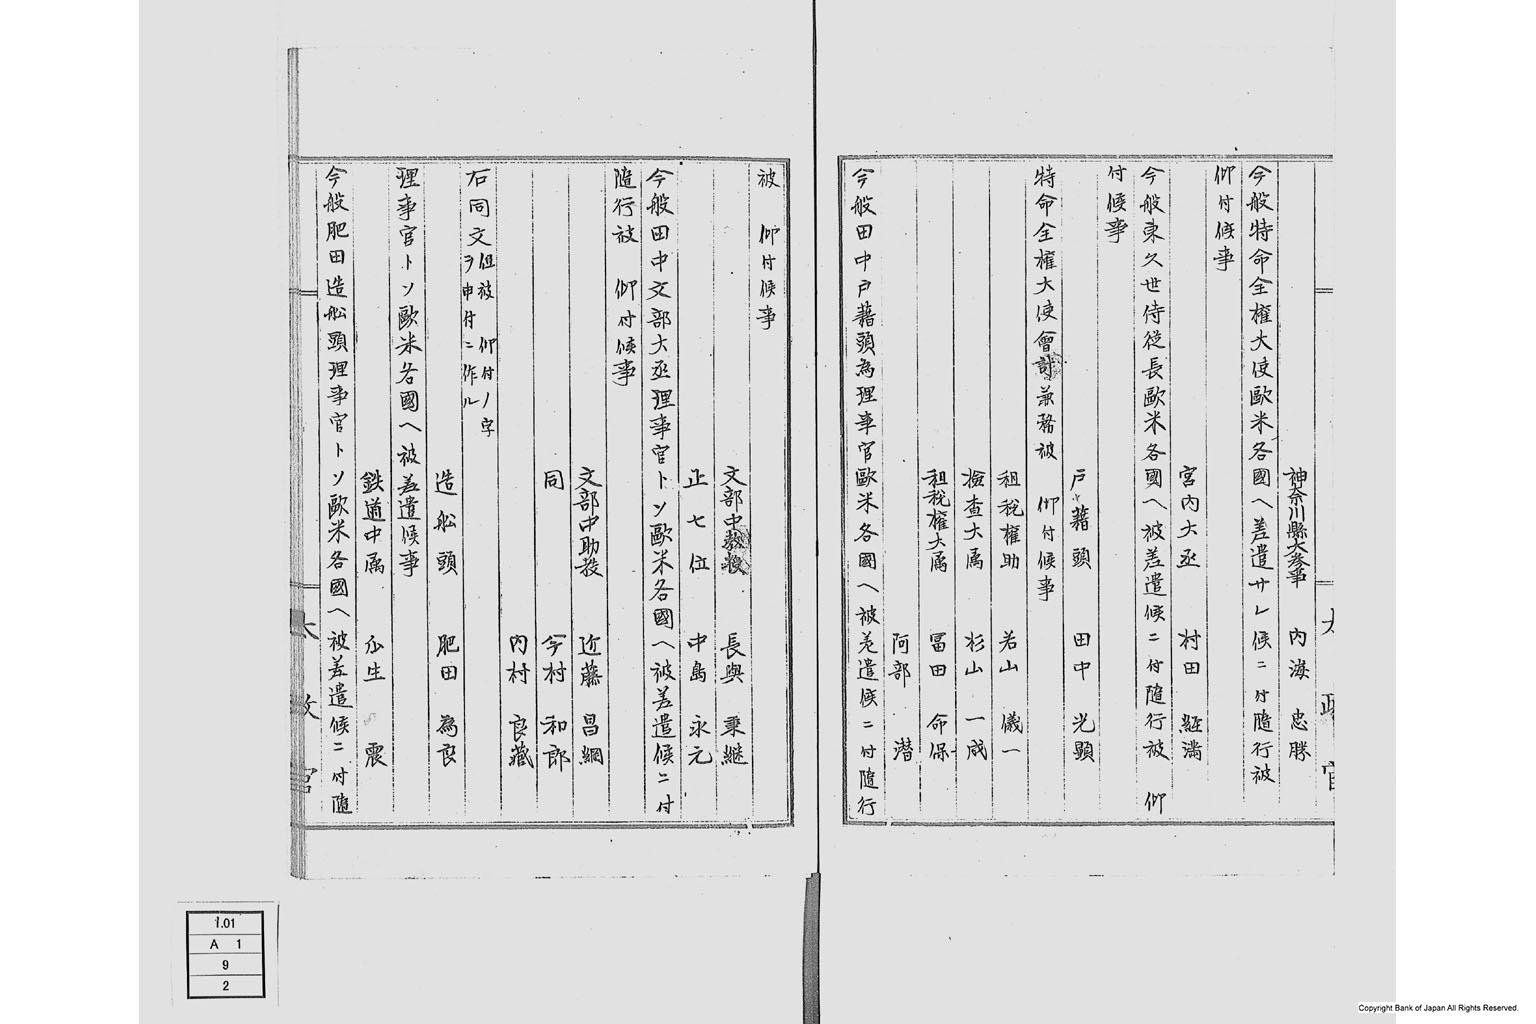 神奈川縣大参事 内海 忠勝
今般特命全權大使歐米各國ヘ差遣サレ候ニ付隨行被
仰付候事
宮内大丞 村田 経満
今般東久世侍従長歐米各國ヘ被差遣候ニ付隨行被 仰
付候事
戸籍頭 田中 光顕
特命全權大使會計兼務被 仰付候事
租税權助 若山 儀一
検査大属 杉山 一成
租税權大属 冨田 命保
阿部 潜
今般田中戸籍頭為理事官歐米各國ヘ被差遣候ニ付隨行
太政官
被 仰付候事
文部中教授 長與 秉継
正七位 中島 永元
今般田中文部大丞理事官トソ歐米各國ヘ被差遣候ニ付
隨行被 仰付候事
文部中助教 近藤 昌綱
同 今村 和郎
内村 良藏
右同文但被 仰付ノ字ヲ申付ニ作ル
造舩頭 肥田 為良
理事官トソ歐米各國ヘ被差遣候事
鉄道中属 瓜生 震
今般肥田造舩頭理事官トソ歐米各國ヘ被差遣候ニ付隨
太政官
1.01
A 1
9
2
Copyright Bank of Japan All Rights Reserved.